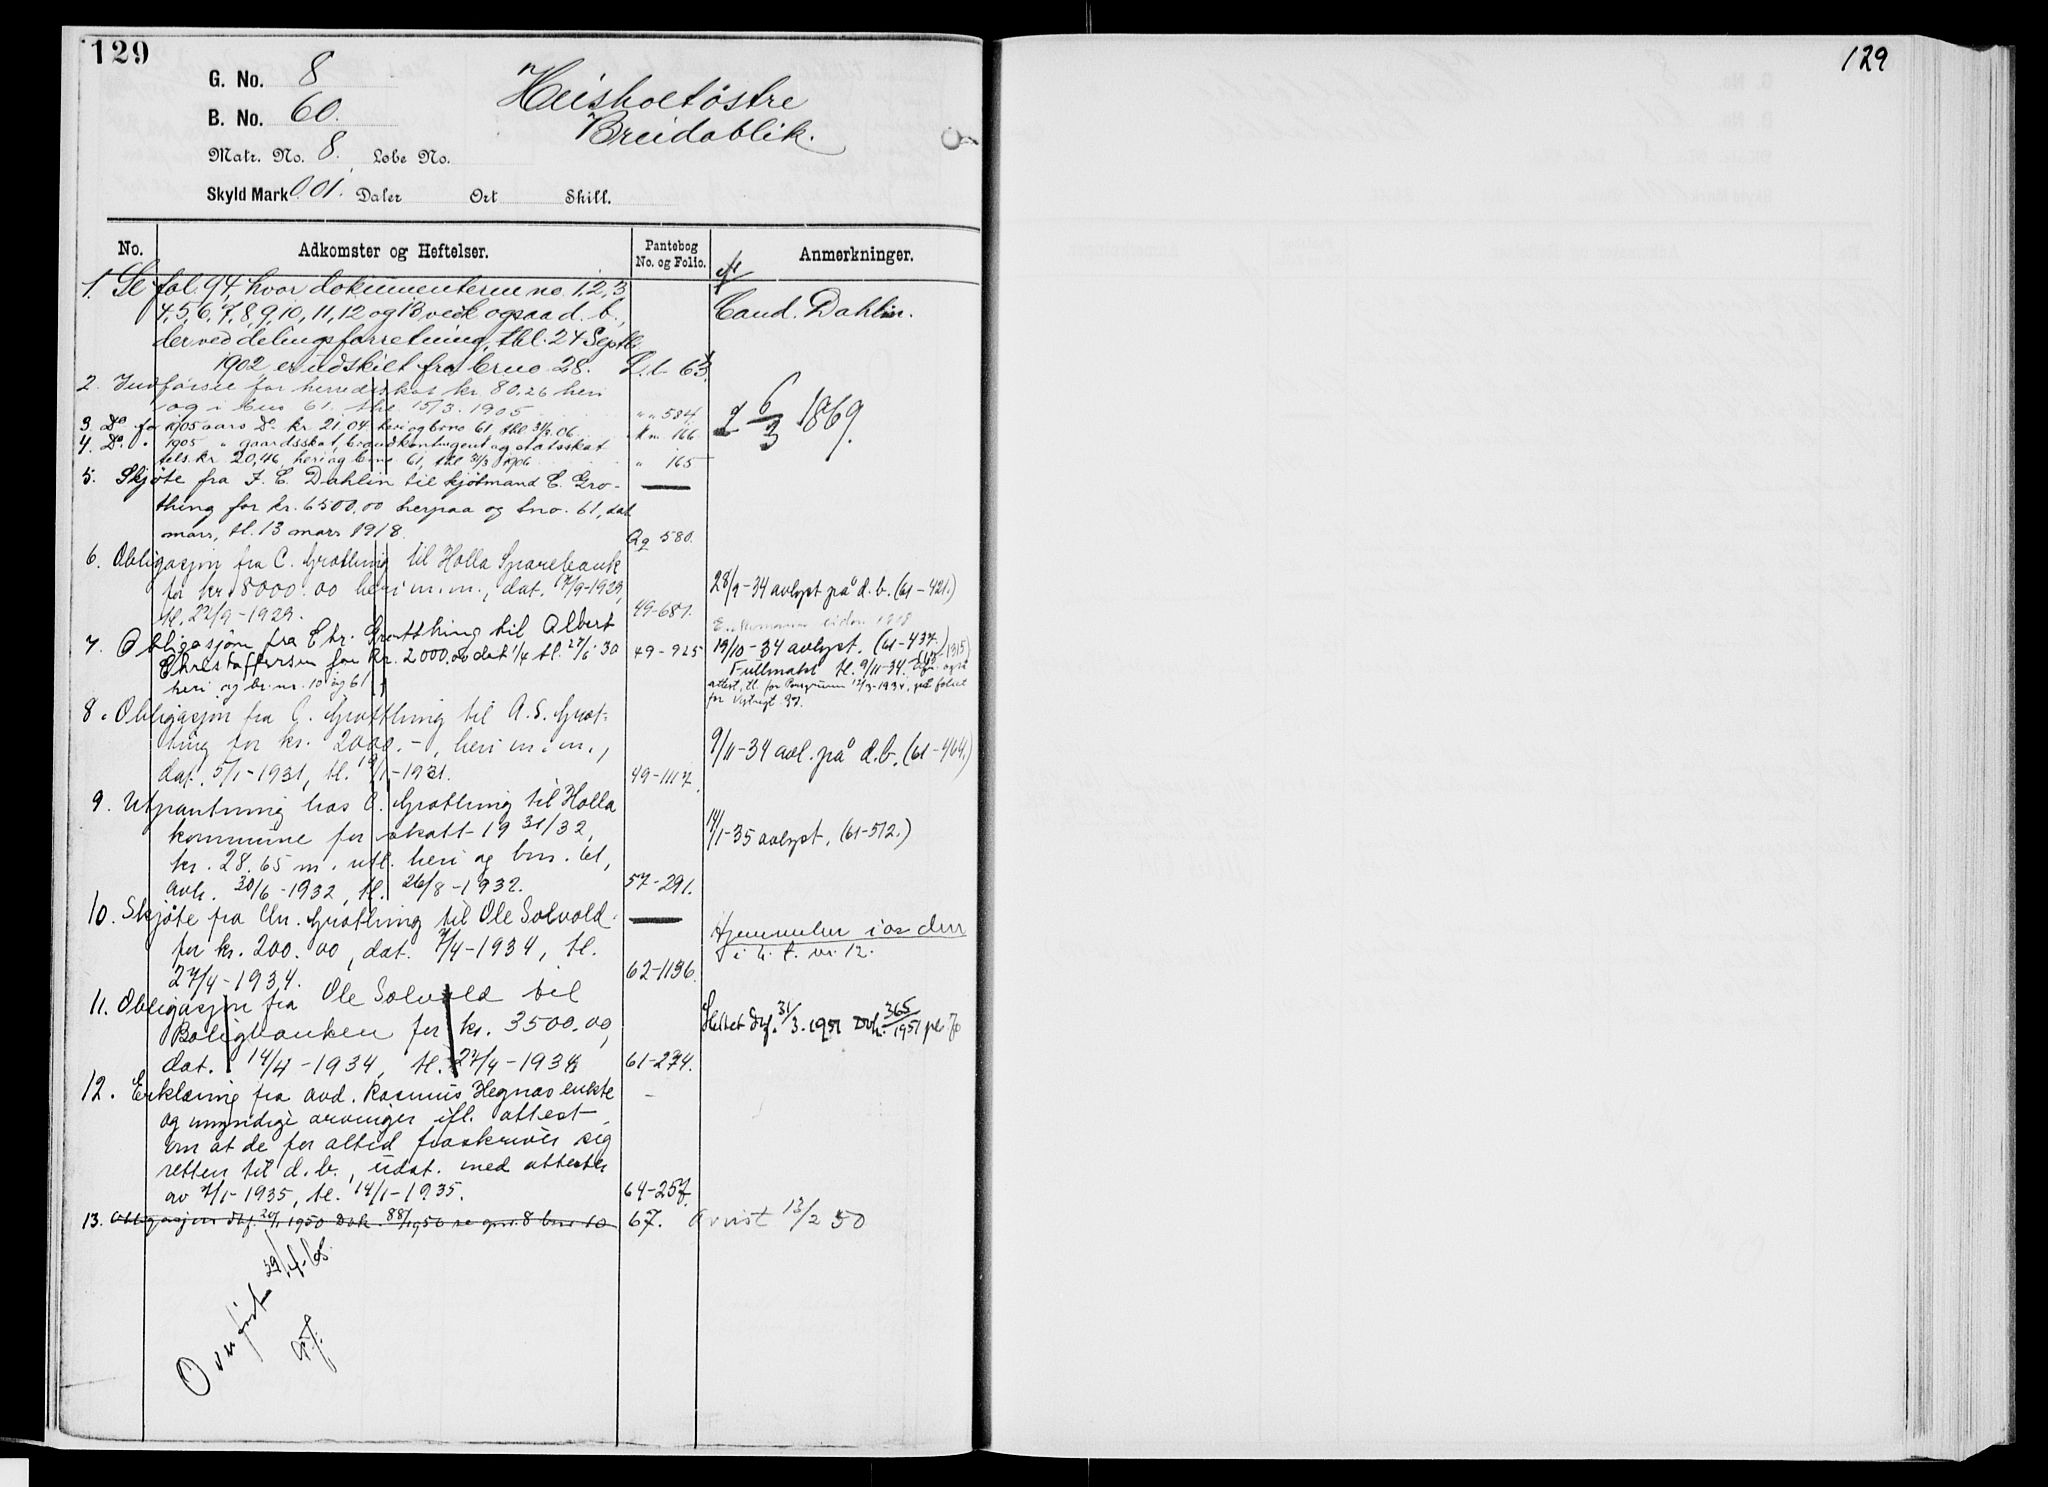 129
129
G. No. 8
Heisholtöstre
B. No. 60.
Breidablik.
Matr. No. 8. Løbe No.
Skyld Mark 0.01. Daler Ort Skill.
No. Adkomster og Heftelser. Pantebog No. og Folio. Anmerkninger.
1. Se fol. 94, hvor dokumenterne no. 1, 2, 3
4, 5, 6, 7, 8, 9, 10, 11, 12 og 13 vedk ogsaa d. b.,
Cand. Dahlin.
der ved delingsforretning, thl. 24 Septb.
1902 er udskilt fra brno 28. L.b. 63.
2. Indførsel for herredsskat kr. 80,26 heri
og i bno 61. thl. 15/3. 1905 " " 584.
6/3 1869.
3. Do for 1905 aars Do kr. 21,04 heri og bno 61 thl. 31/3 06. M.m. 166
4. Do " 1905 " gaardsskat, brandkontingent og statsskat
tils. kr. 20,46, heri og bno 61, thl 31/3 1906 " 165
5. Skjøte fra F. C. Dahlin til kjøtmand C. Gro-
thing for kr. 6500,00 herpaa og bno. 61, dat.
mars, tl. 13 mars 1918. Qq 580.
6. Obligasjon fra C. Grothing til Holla Sparebank
for kr. 8000.00 heri m.m., dat. 17/9-1929,
28/9-34 avlyst på d. b. (61-421.)
tl. 27/9-1929. 49-681.
7. Obligasjon fra Chr. Grothing til Albert
Christoffersen for kr. 2000,00 dat 1/4 tl. 27/6 30 49-925
19/10-34 avlyst. (61-437.)
heri og br.nr. 10 og 61
Fullmakt tl. 9/11-34.
8. Obligasjon fra C. Grothing til A. S. Grot-
ting for kr. 2000.-, heri m.m.,
9/11-34 avl. på d.b. (61-464.)
dat. 5/1-1931, tl. 19/1-1931. 49-1117.
9. Utpantning hos C. Grothing til Holla
kommune for skatt 1931/32,
14/1-35 avlyst. (61-512.)
kr. 28.65 m. utl. heri og bnr. 61,
avh. 30/6-1932, tl. 26/8-1932. 57-291.
10. Skjøte fra Chr. Grothing til Ole Solvold
for kr. 200.00, dat. 7/4-1934, tl.
27/4-1934. 62-1136.
i h. t. nr. 12.
11. Obligasjon fra Ole Solvold til
Boligbanken for kr. 3500.00,
Slettet dbf. 31/3.1951 Dok. 365/1951
dat. 14/4-1934, tl. 27/4-1934. 61-274.
12. Erklæring fra avd. Rasmus Hegnas enkte
og umyndige arvinger ifl. attest
om at de for altid fraskriver sig
retten til d. b., udat. med attester
av 7/1-1935, tl. 14/1-1935. 64-257.
13. Obligasjon dbf. 20/1 1950 Dok. 88/1950 se gnr. 8 bnr 10 67. Avvist 13/2 50
Overført 29/4-65